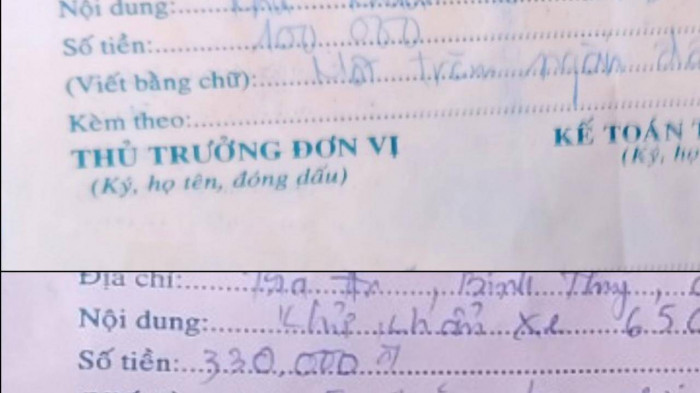 Nội dung:
Số tiền: 100 000
(Viết bằng chữ): Một trăm ngàn
Kèm theo:
THỦ TRƯỞNG ĐƠN VỊ KẾ TOÁN T
(Ký, họ tên, đóng dấu) (Ký, họ
Địa chỉ: Trà An, Bình Thủy,
Nội dung: Khử khuẩn xe 650
Số tiền: 330,000 đ